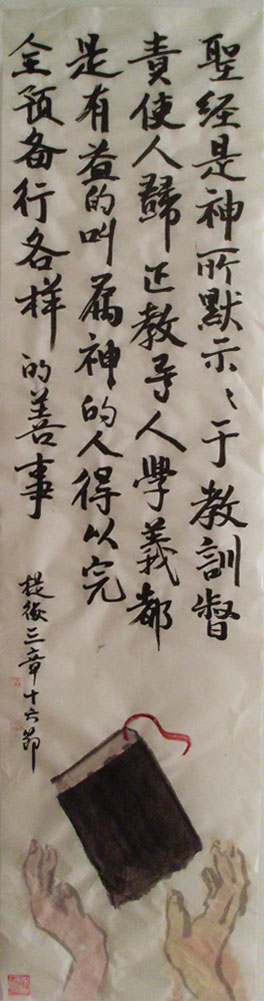 聖经是神所默示〻于教訓督
責使人歸正教导人學義都
是有益的叫属神的人得以完
全预备行各样的善事
提後三章十六節